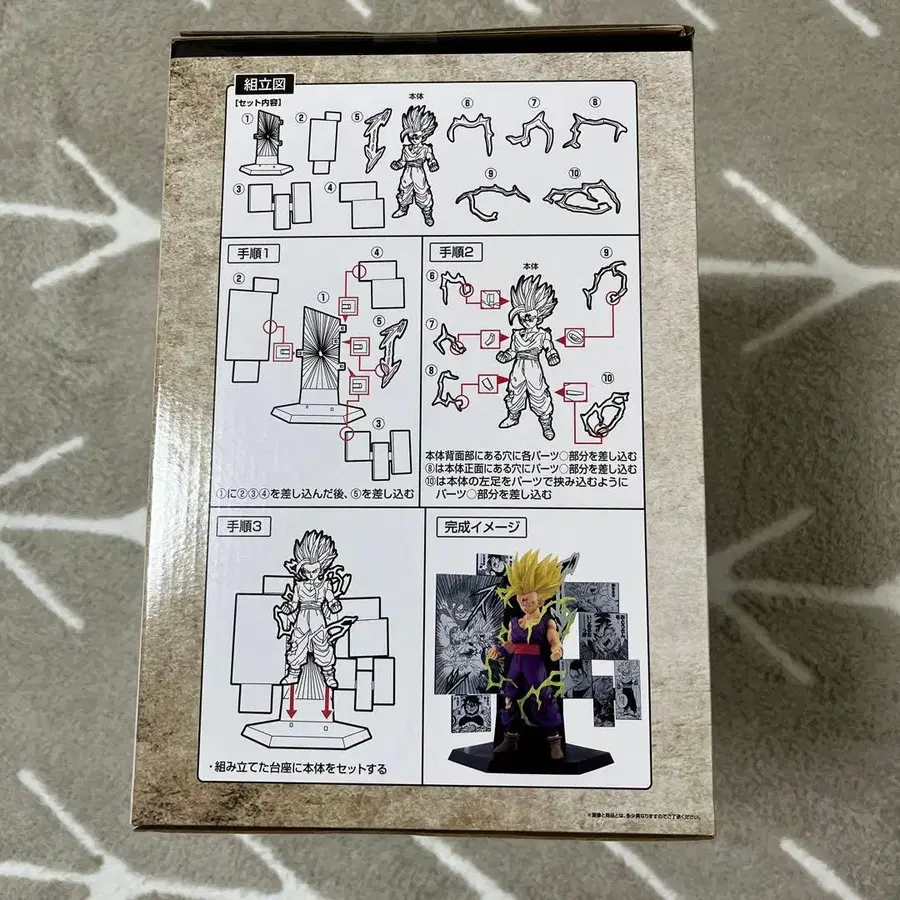 組立図
[セット内容]
① ② ⑤ 本体 ⑥ ⑦ ⑧
③ ④ ⑨ ⑩
手順1
④
②
①
⑤
③
①に②③④を差し込んだ後、⑤を差し込む
手順2
本体
⑨
⑥
⑦
⑧
⑩
本体背面部にある穴に各パーツ○部分を差し込む
⑧は本体正面にある穴にパーツ○部分を差し込む
⑩は本体の左足をパーツで挟み込むように
パーツ○部分を差し込む
手順3
・組み立てた台座に本体をセットする
完成イメージ
※画像と商品とは、多少異なりますのでご了承ください。